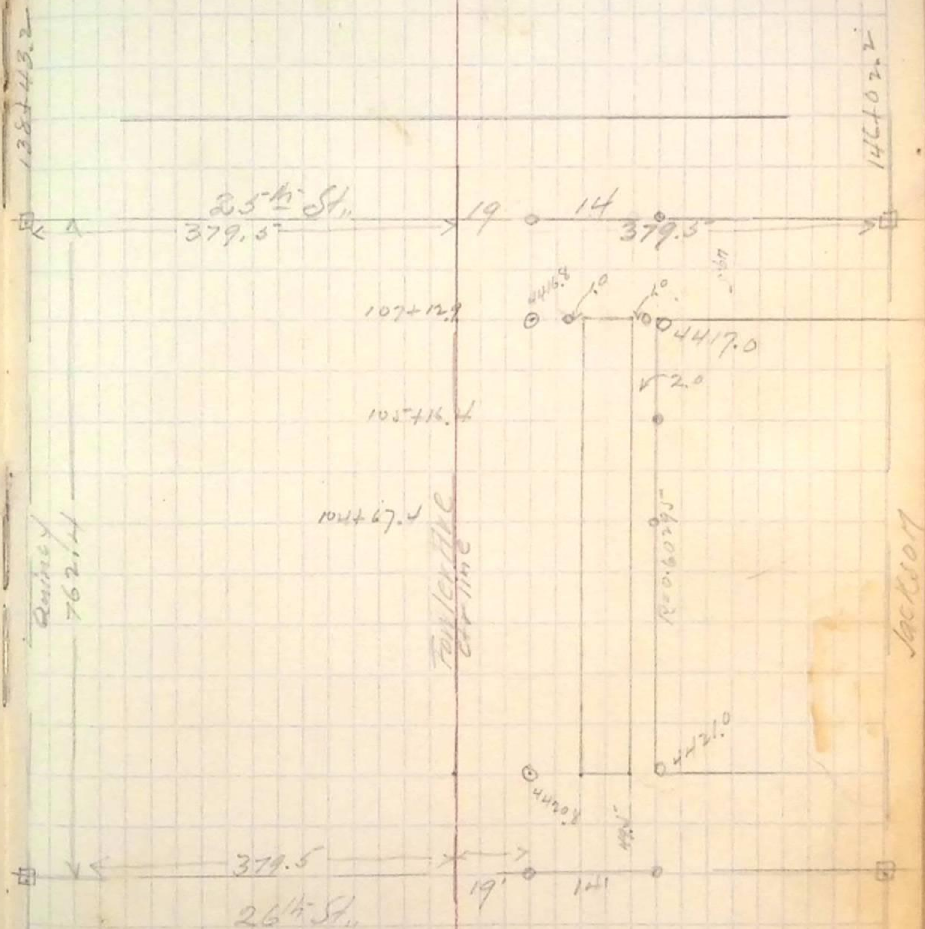 138+43.2
146+02.2
25th St.,
379.5
19
14
379.5
107+12.9
4416.8
1.0
1.0
4417.0
2.0
105+16.4
104+67.4
Quincy
762.4
Fowler Ave
ctr line
Jackson
4421.0
4420.8
379.5
19'
14'
26th St.,